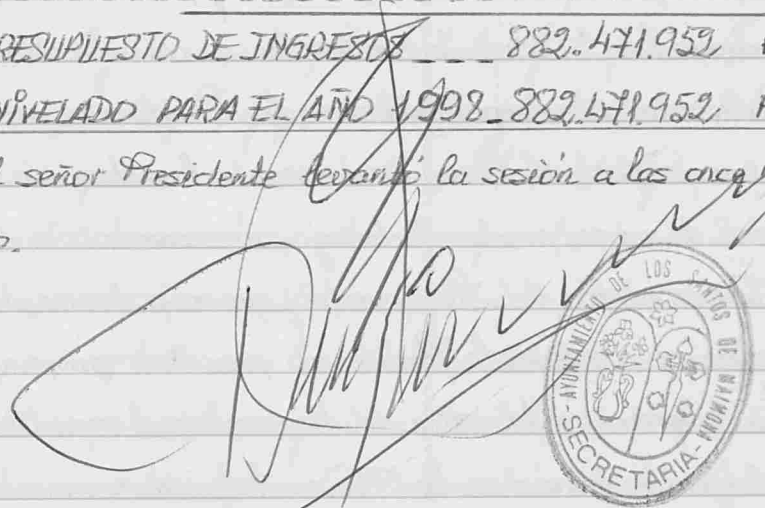 RESUPUESTO DE INGRESOS___882.471.952
NIVELADO PARA EL AÑO 1998_882.471.952
señor Presidente levantó la sesión a las once
AYUNTAMIENTO DE LOS SANTOS DE MAIMONA
-SECRETARIA-